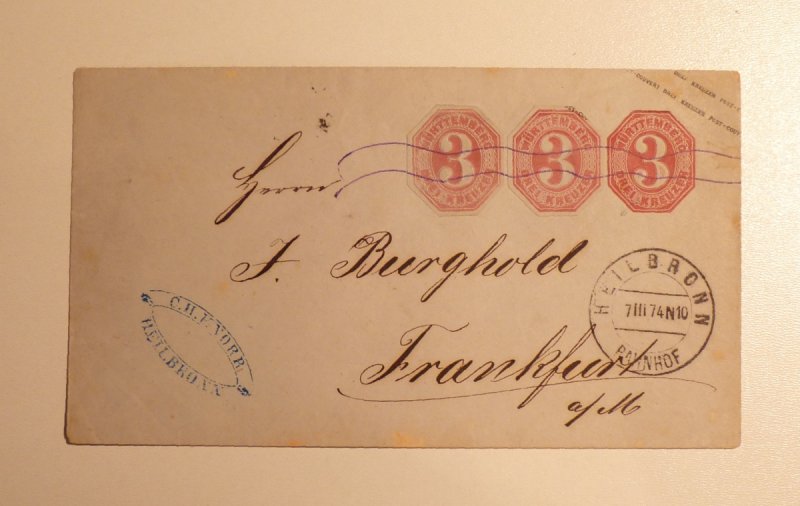 DREI KREUZER POST-C
-COUVERT DREI KREUZER POST-COUV
WÜRTTEMBERG
3
DREI KREUZER
WÜRTTEMBERG
3
DREI KREUZER
WÜRTTEMBERG
3
DREI KREUZER
Herrn
J. Burghold
Frankfurt
a/M
HEILBRONN
7 III 74 N 10
BAHNHOF
HEILBRONN